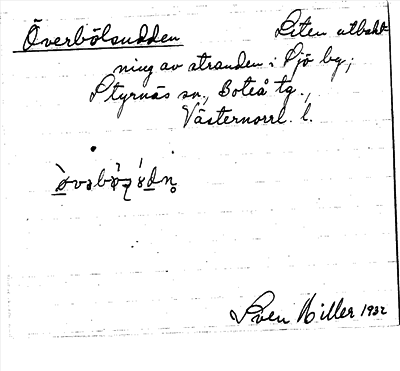 Överbölsudden Liten utbukt
ning av stranden i Sjö by,
Styrnäs sn., Boteå tg.,
Västernorrl. l.
Sven Hiller 1932